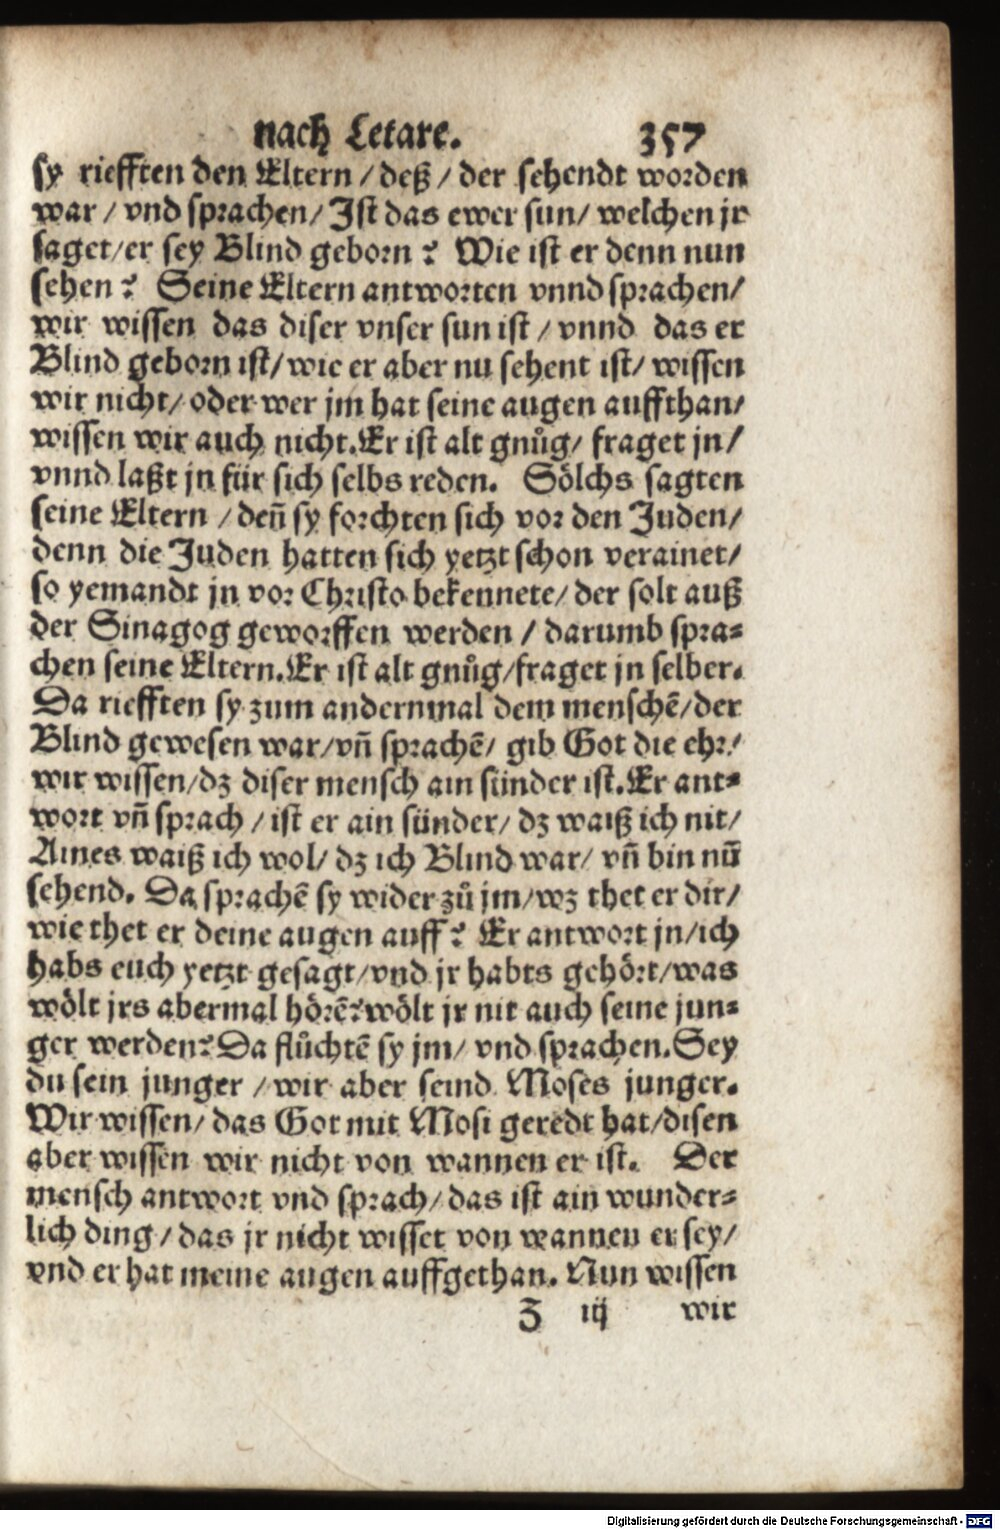 nach Letare. 357
sy riefften den Eltern / deß / der sehendt worden
war / vnd sprachen / Ist das ewer sun / welchen jr
saget / er sey Blind geborn? Wie ist er denn nun
sehen? Seine Eltern antworten vnnd sprachen /
wir wissen das diser vnser sun ist / vnnd das er
Blind geborn ist / wie er aber nu sehent ist / wissen
wir nicht / oder wer jm hat seine augen auffthan /
wissen wir auch nicht. Er ist alt gnůg / fraget jn /
vnnd laßt jn für sich selbs reden. Sölchs sagten
seine Eltern / deñ sy forchten sich vor den Juden /
denn die Juden hatten sich yetzt schon verainet /
so yemandt jn vor Christo bekennete / der solt auß
der Sinagog geworffen werden / darumb spra=
chen seine Eltern. Er ist alt gnůg / fraget jn selber.
Da riefften sy zum andernmal dem menschẽ / der
Blind gewesen war / vñ sprachẽ / gib Got die ehr /
wir wissen / dz diser mensch ain sünder ist. Er ant=
wort vñ sprach / ist er ain sünder / dz waiß ich nit /
Aines waiß ich wol / dz ich Blind war / vñ bin nũ
sehend. Da sprachẽ sy wider zů jm / wz thet er dir /
wie thet er deine augen auff? Er antwort jn / ich
habs euch yetzt gesagt / vnd jr habts gehört / was
wölt jrs abermal hörẽ? wölt jr nit auch seine jun=
ger werden? Da flůchtẽ sy jm / vnd sprachen. Sey
du sein junger / wir aber seind Moses junger.
Wir wissen / das Got mit Mosi geredt hat / disen
aber wissen wir nicht von wannen er ist. Der
mensch antwort vnd sprach / das ist ain wunder=
lich ding / das jr nicht wisset von wannen er sey /
vnd er hat meine augen auffgethan. Nun wissen
Z iij wir
Digitalisierung gefördert durch die Deutsche Forschungsgemeinschaft - DFG